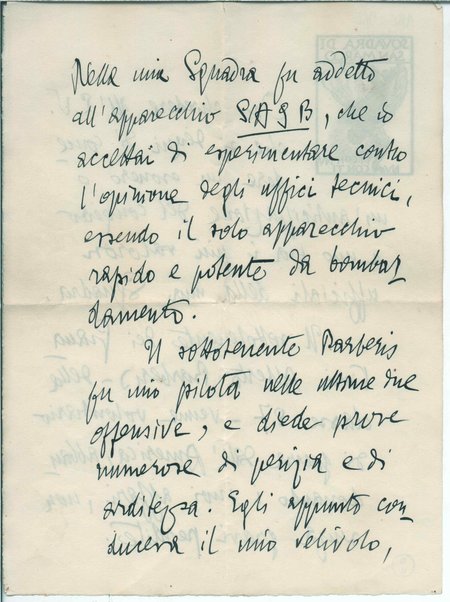 Nella mia Squadra fu addetto
all'apparecchio SIA 9 B, che io
accettai di esperimentare contro
l'opinione degli uffici tecnici,
essendo il solo apparecchio
rapido e potente da bombar
damento.
Il sottotenente Barberis
fu mio pilota nelle ultime due
offensive, e diede prove
numerose di perizia e di
arditezza. Egli appunto con
duceva il mio velivolo,